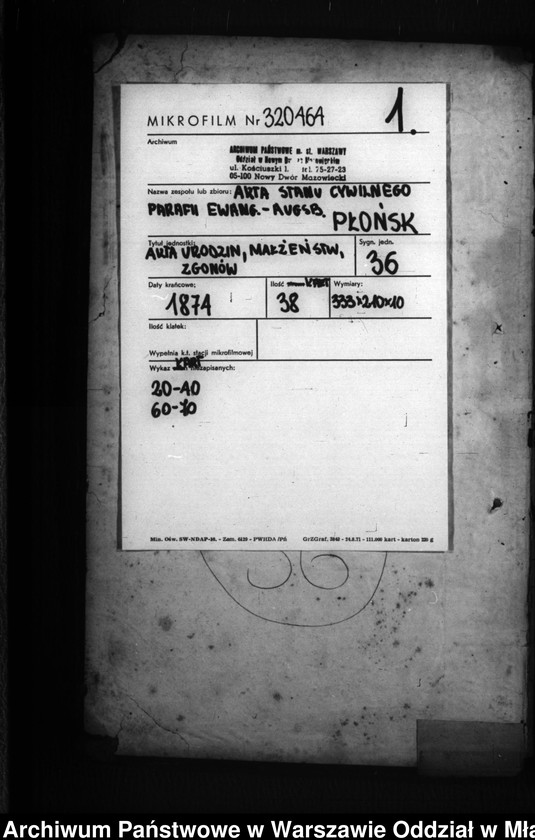 MIKROFILM Nr 320464
1.
Archiwum
ARCHIWUM PAŃSTWOWE m. st. WARSZAWY
Oddział w Nowym
ul. Kościuszki 1. tel. 75-27-23
05-100 Nowy Dwór Mazowiecki
Nazwa zespołu lub zbioru: AKTA STANU CYWILNEGO
PARAFII EWANG.-AUGSB.
PŁOŃSK
Tytuł jednostki: AKTA URODZIN, MAŁŻEŃSTW,
ZGONÓW
Sygn. jedn.
36
Daty krańcowe:
1874
Ilość KART
38
Wymiary:
333x210x10
Ilość klatek:
Wypełnia k.t. stacji mikrofilmowej
Wykaz KART niezapisanych:
20-40
60-70
Min. Ośw. SW-NDAP-90. - Zam. 6123 - PWHDA/Pń
36
Archiwum Państwowe w Warszawie Oddział w Mła